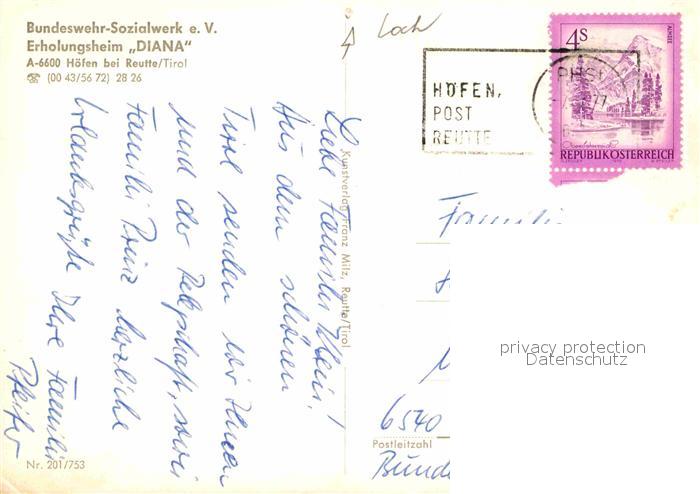 Bundeswehr-Sozialwerk e. V.
Erholungsheim „DIANA“
A-6600 Höfen bei Reutte/Tirol
☎ (00 43/56 72) 28 26
Loch
HÖFEN,
POST
REUTTE
4S
ALMSEE
REPUBLIK ÖSTERREICH
Liebe Familie Klein!
Aus dem schönen
Tirol senden wir Ihnen
und der Belegschaft, sowie
Familie Prinz herzliche
Urlaubsgrüße Ihre Familie
Pfeifer
Kunstverlag Franz Milz, Reutte/Tirol
Familie
6540
Postleitzahl
Bunde
Nr. 201/753
privacy protection
Datenschutz